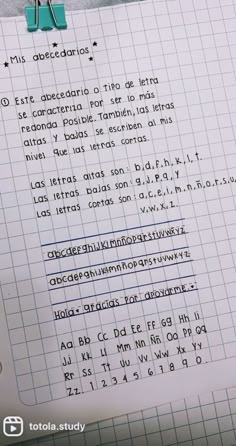 ★ Mis abecedarios ★
① Este abecedario o tipo de letra
se caracteriza por ser lo más
redonda posible. También, las letras
altas y bajas se escriben al mis
nivel que las letras cortas.
Las letras altas son: b, d, f, h, k, l, t.
Las letras bajas son: g, j, p, q, y
Las letras cortas son: a, c, e, i, m, n, ñ, o, r, s, u,
v, w, x, z.
abcdefghijklmnñopqrstuvwxyz
abcdefghijklmnñopqrstuvwxyz
Hola• gracias por apoyarme.•
Aa Bb Cc Dd Ee Ff Gg Hh Ii
Jj Kk Ll Mm Nn Ññ Oo Pp Qq
Rr Ss Tt Uu Vv Ww Xx Yy
Zz 1 2 3 4 5 6 7 8 9 0
totola.study